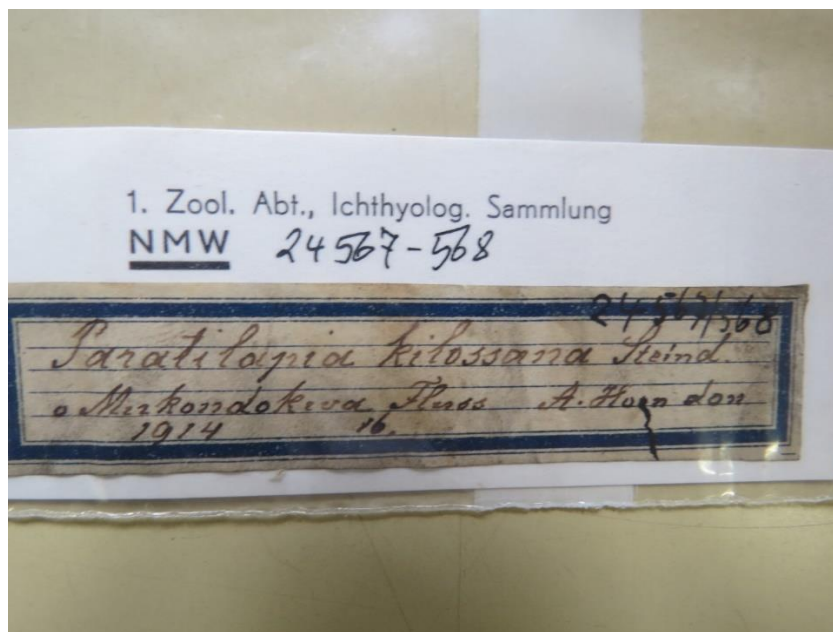 1. Zool. Abt., Ichthyolog. Sammlung
NMW 24567-568
24567/568
Paratilapia kilossana Steind.
o Mukondokwa Fluss A. Horn don
1914 16.